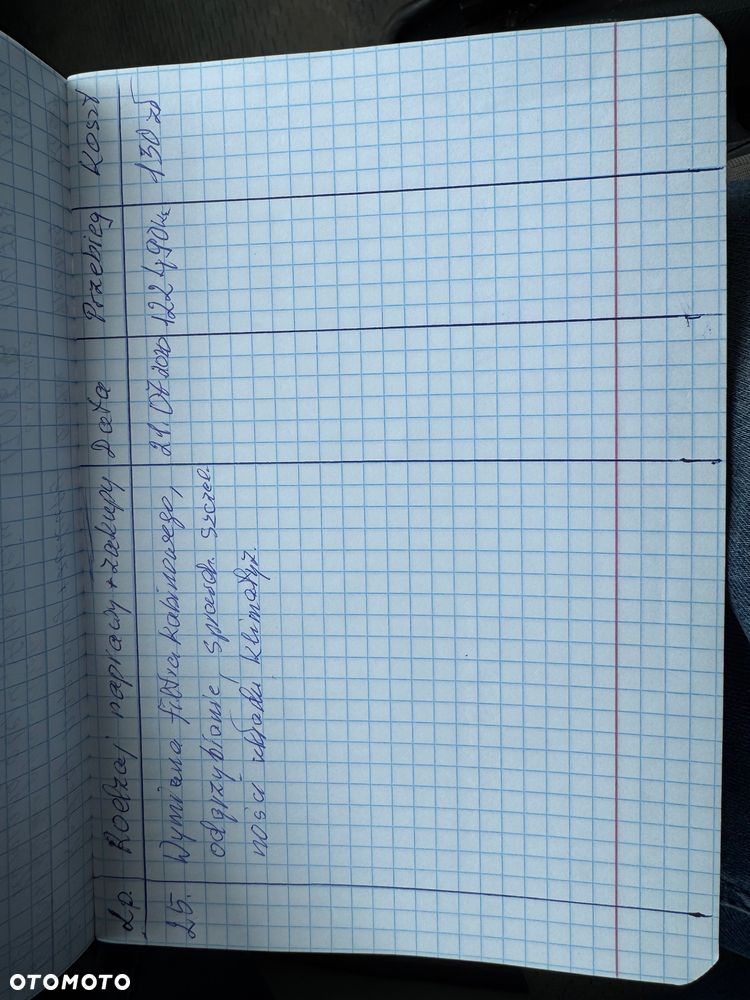 Lp. Rodzaj naprawy + zakupy Data Przebieg Koszt
25. Wymiana filtra kabinowego, 21.07.2020 122490km 130 zł
odgrzybianie, sprawdz. szczel.
ności układu klimatyz.
OTOMOTO